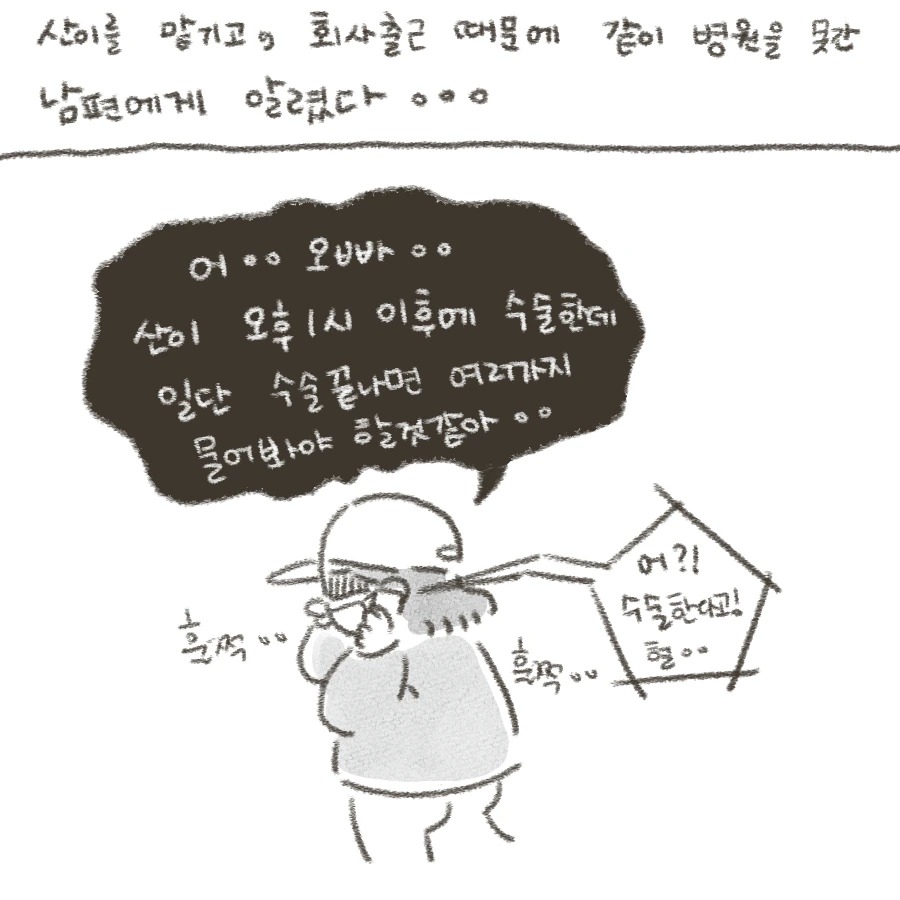 산이를 맡기고, 회사출근 때문에 같이 병원을 못간
남편에게 알렸다...
어.. 오빠..
산이 오후1시 이후에 수술한데
일단 수술끝나면 여러가지
물어봐야 할것같아..
어?!
수술한다고!
헐..
훌쩍..
훌쩍..